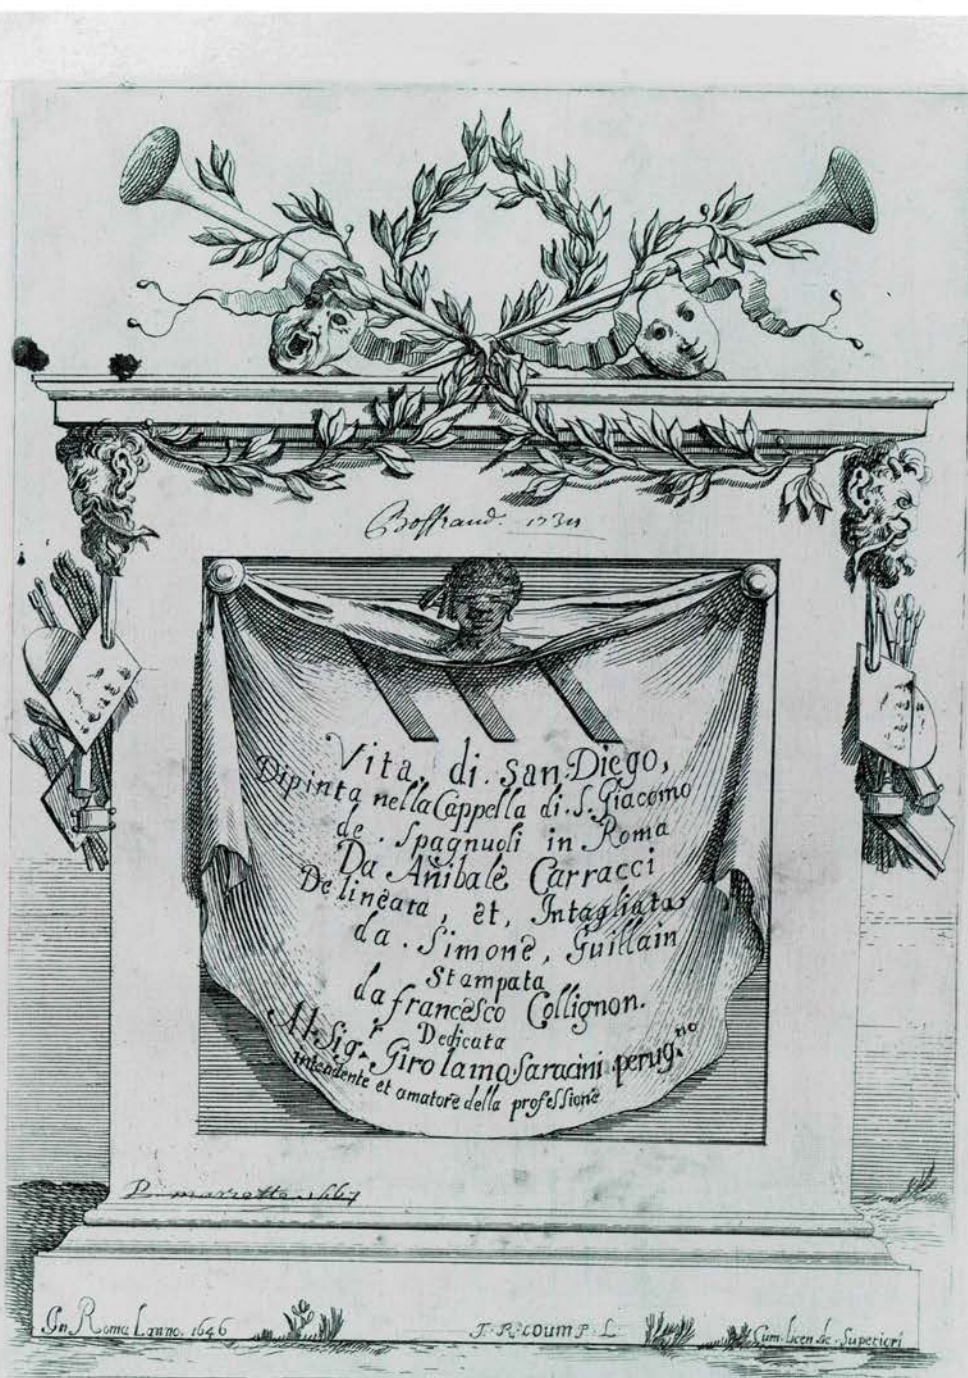 Boffrand. 1734
Vita. di. San. Diego,
Dipinta nella Cappella di. S. Giacomo
de. Spagnuoli in Roma
Da Añibale Carracci
Delineata, et, Intagliata
da. Simone, Guillain
Stampata
da francesco Collignon.
Dedicata
Al. Sig.r Girolamo Saracini perug.no
intendente et amatore della professione
P. mariette 1667
In Roma Lanno. 1646
Cum licen de Superiori